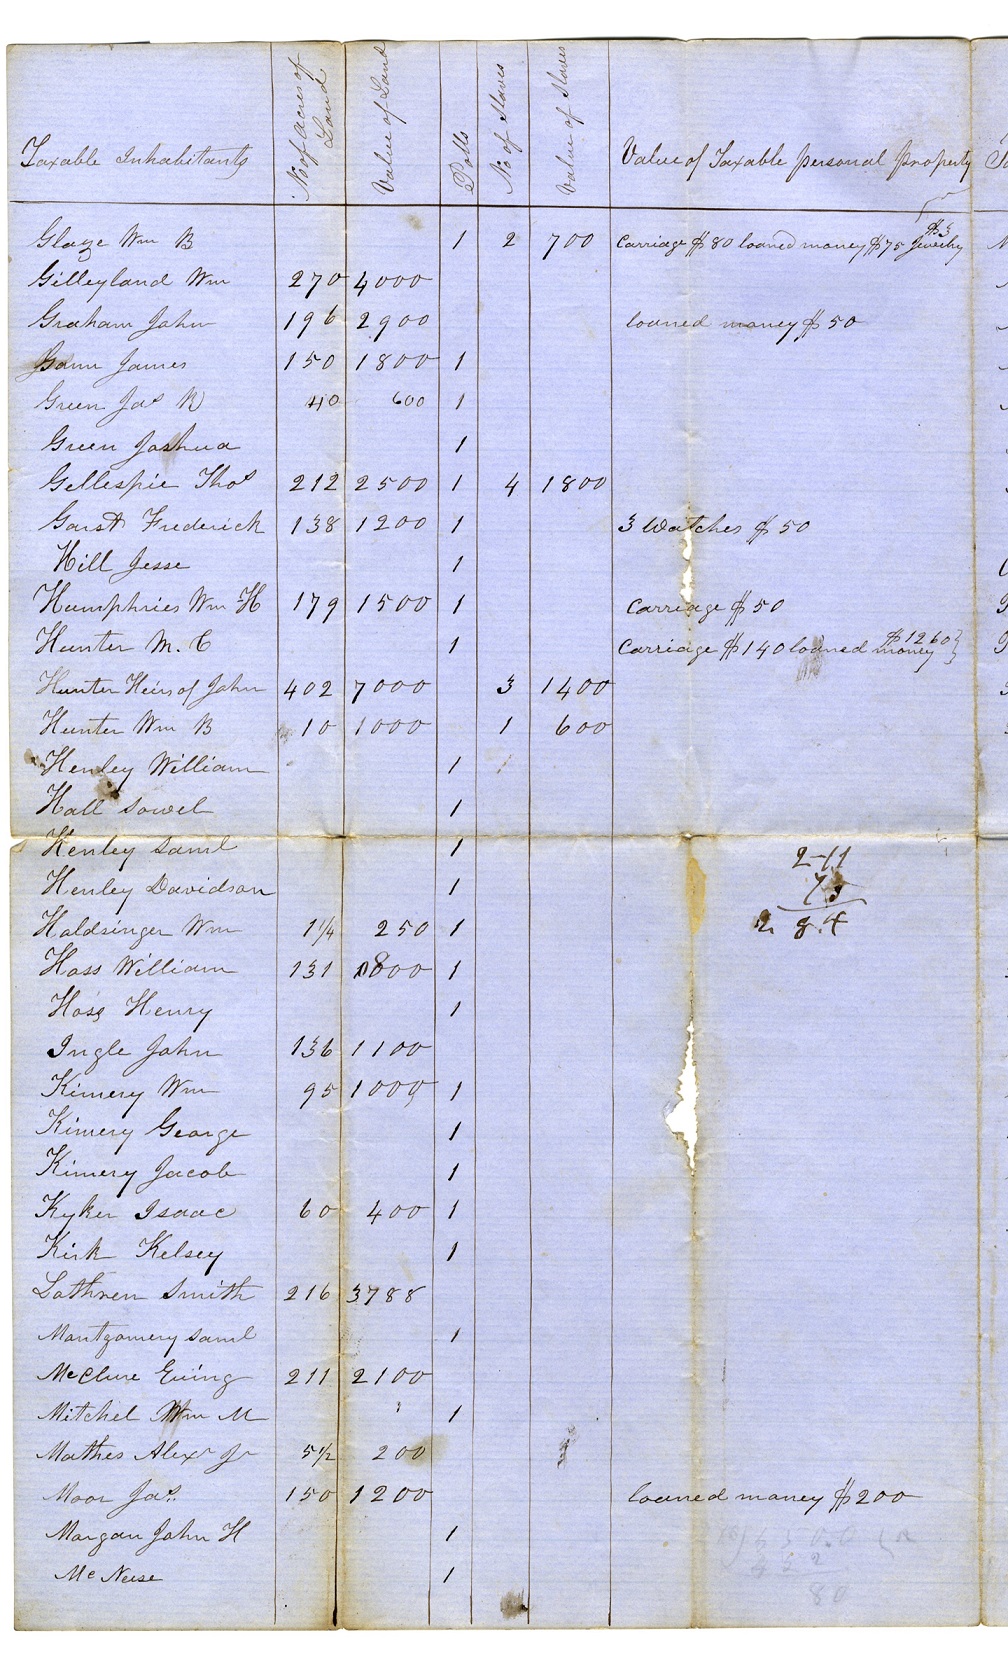 Taxable Inhabitants No of Acres of Land Value of Land Polls No of Slaves Value of Slaves Value of Taxable Personal Property
Glaze Wm B 1 2 700 Carriage $80 loaned money $75 Jewelry $3
Gilleyland Wm 270 4000
Graham John 196 2900 loaned money $50
Gann James 150 1800 1
Green Jas R 40 600 1
Green Joshua 1
Gellespie Thos 212 2500 1 4 1800
Garst Frederick 138 1200 1 3 Watches $50
Hill Jesse 1
Humphries Wm H 179 1500 1 Carriage $50
Hunter M. C 1 Carriage $140 loaned money $1260
Hunter Heirs of John 402 7000 3 1400
Hunter Wm B 10 1000 1 600
Henley William 1
Hall Sowel 1
Henley Saml 1
Henley Davidson 1
Holdsinger Wm 1 1/4 250 1
Hoss William 131 1800 1
Hoss Henry 1
Ingle John 136 1100
Kimery Wm 95 1000 1
Kimery George 1
Kimery Jacob 1
Kyker Isaac 60 400 1
Kirk Kelsey 1
Lothren Smith 216 3788
Montgomery Saml 1
McClure Ewing 211 2100
Mitchel Wm M 1
Mathes Alexr Jr 5 1/2 200
Moor Jas. 150 1200 loaned money $200
Morgan John H 1
McNeese 1
2-11